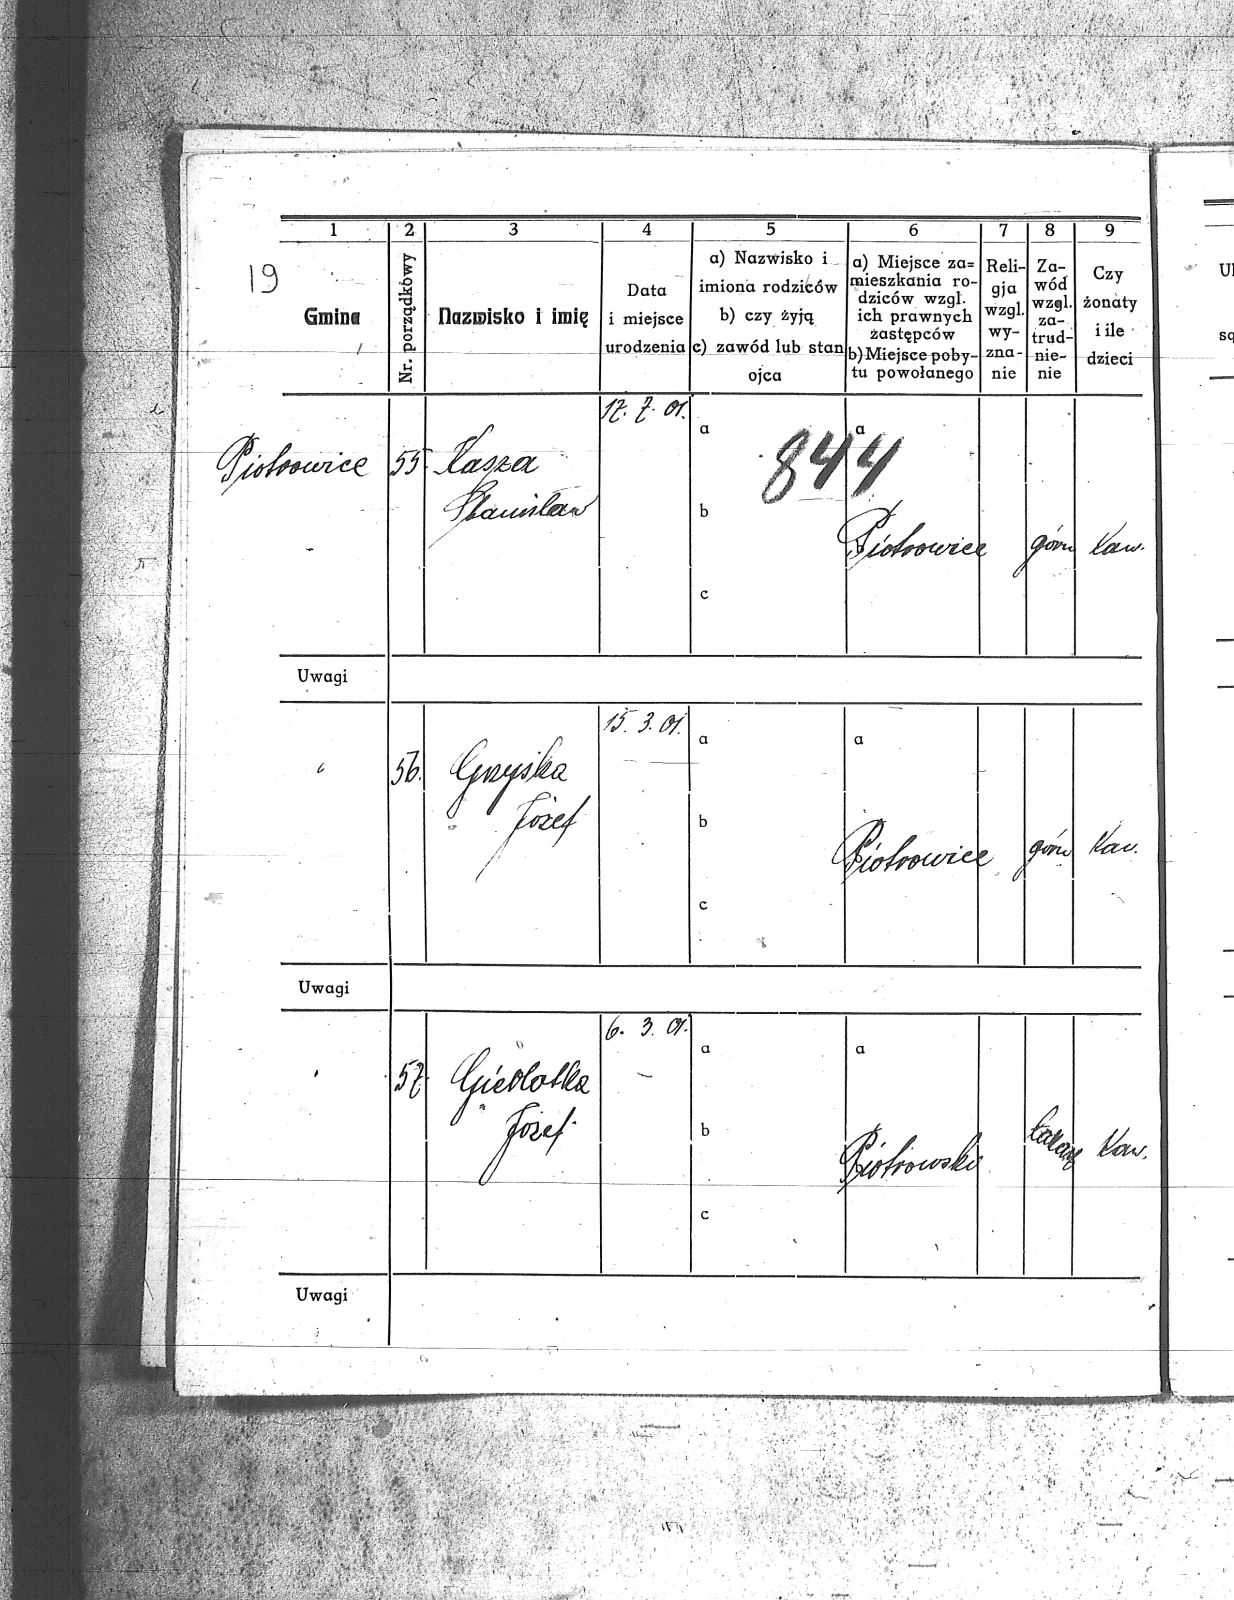 19
1 2 3 4 5 6 7 8 9
Gmina
Nr. porządkowy
Nazwisko i imię
Data
i miejsce
urodzenia
a) Nazwisko i
imiona rodziców
b) czy żyją
c) zawód lub stan
ojca
a) Miejsce za=
mieszkania ro-
dziców wzgl.
ich prawnych
zastępców
b) Miejsce poby-
tu powołanego
Reli-
gja
wzgl.
wy-
zna-
nie
Za-
wód
wzgl.
za-
trud-
nie-
nie
Czy
żonaty
i ile
dzieci
17. 7. 01.
a a
844
Piotrowice 55. Kasza
Stanisław
b
Piotrowice górn Kaw.
c
Uwagi
15. 3. 01.
a a
" 56. Gryśka
Józef
b b
Piotrowice górn Kaw.
c
Uwagi
6. 3. 01.
a a
" 57. Giedlotka
Józef
b
Kaw.
c
Uwagi